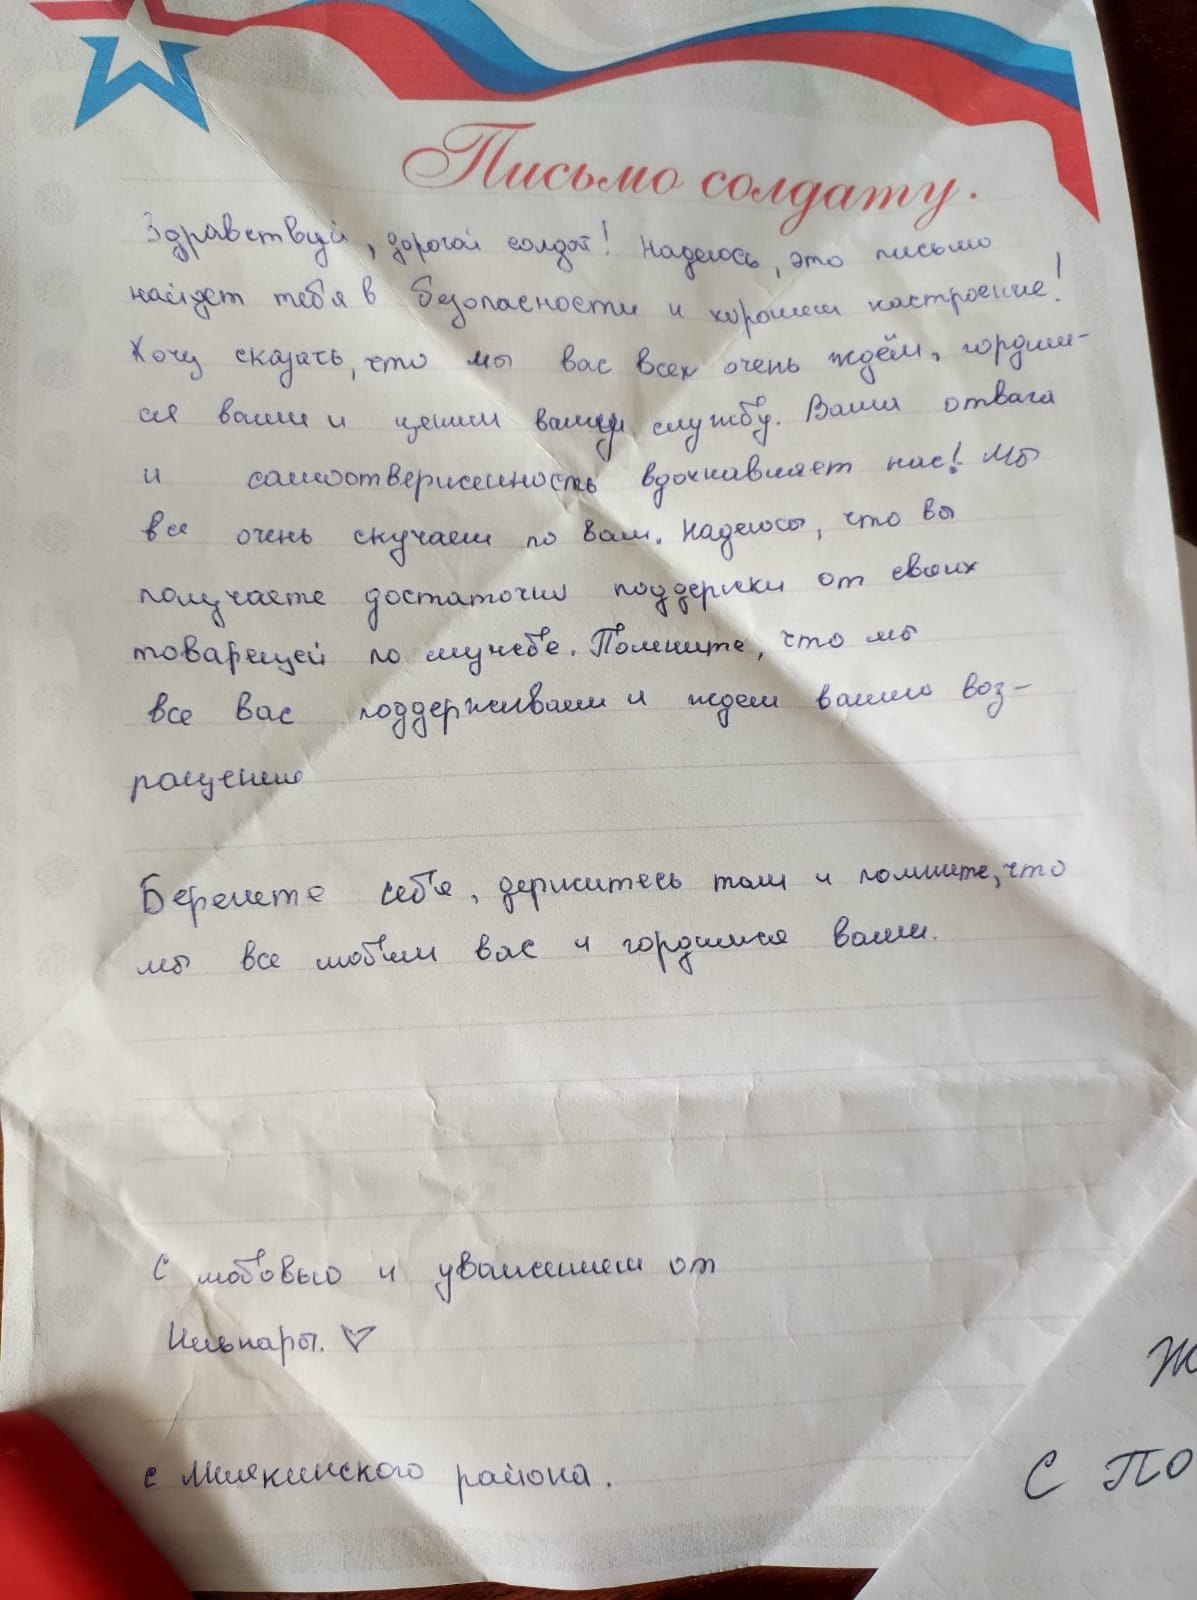 Письмо солдату.
Здравствуй, дорогой солдат! Надеюсь, это письмо
найдет тебя в безопасности и хорошем настроение!
Хочу сказать, что мы вас всех очень ждём, гордим-
ся вами и ценим вашу службу. Ваша отвага
и самоотверженность вдохнавляет нас! Мы
все очень скучаем по вам. Надеюсь, что вы
получаете достаточно поддержки от своих
товарищей по службе. Помните, что мы
все вас поддерживаем и ждем вашего воз-
ращения
Бережете себя, держитесь там и помните, что
мы все любим вас и гордимся вами.
С любовью и уважением от
Ильнары. ♡
с Миякинского района.
Ж
С ПО